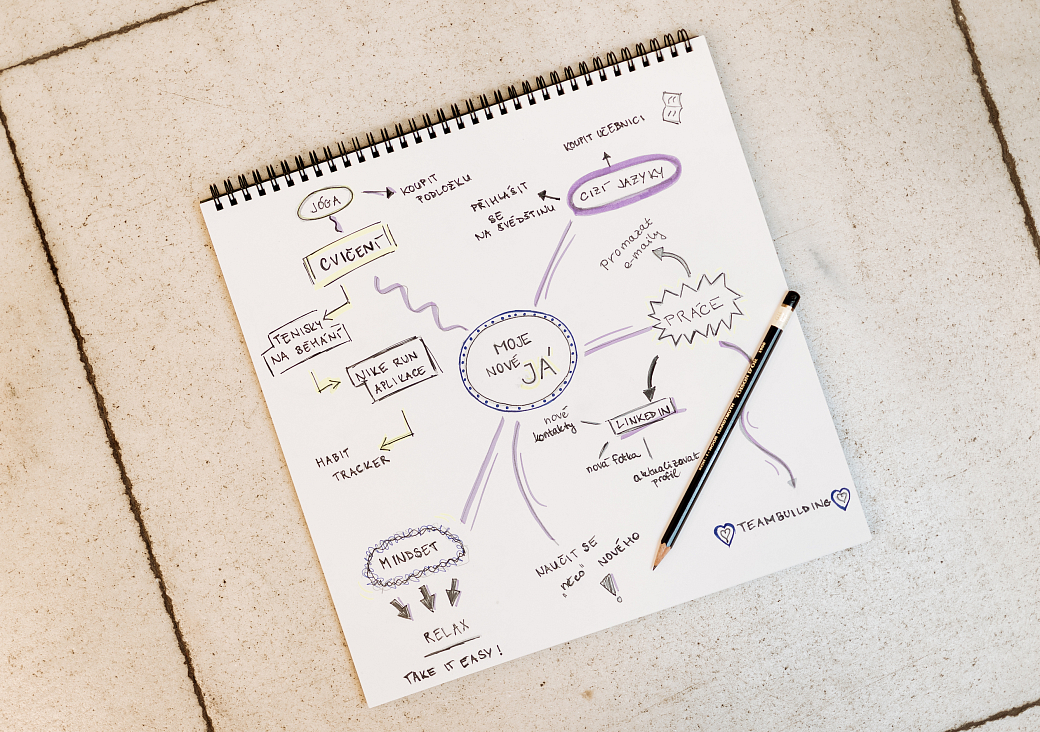 JÓGA
KOUPIT
PODLOŽKU
CVIČENÍ
TENISKY
NA BĚHÁNÍ
NIKE RUN
APLIKACE
HABIT
TRACKER
KOUPIT UČEBNICI
CIZÍ JAZYKY
PŘIHLÁSIT
SE
NA ŠVÉDŠTINU
Promazat
e-maily
PRÁCE
MOJE
NOVÉ JÁ
LINKEDIN
nové
kontakty
nová fotka
aktualizovat
profil
TEAMBUILDING
MINDSET
RELAX
TAKE IT EASY!
NAUČIT SE
"NĚCO" NOVÉHO